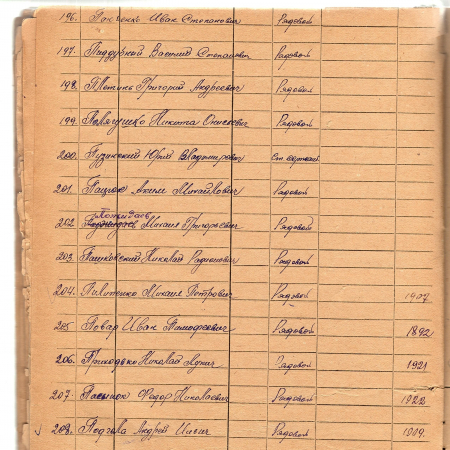 196. Иван Степанович Рядовой
197. Поддубный Василий Степанович Рядовой
198. Григорий Андреевич Рядовой
199. Никита Рядовой
200. Юрий Владимирович Ст. сержант
201. Пацюк Аким Михайлович Рядовой
202. Михаил Григорьевич Рядовой
203. Пашковский Николай Родионович Рядовой
204. Пилипенко Михаил Петрович Рядовой 1907
205 Повар Иван Тимофеевич Рядовой 1892
206. Приходько Николай Рядовой 1921
207. Федор Николаевич Рядовой 1922
208. Андрей Рядовой 1909.